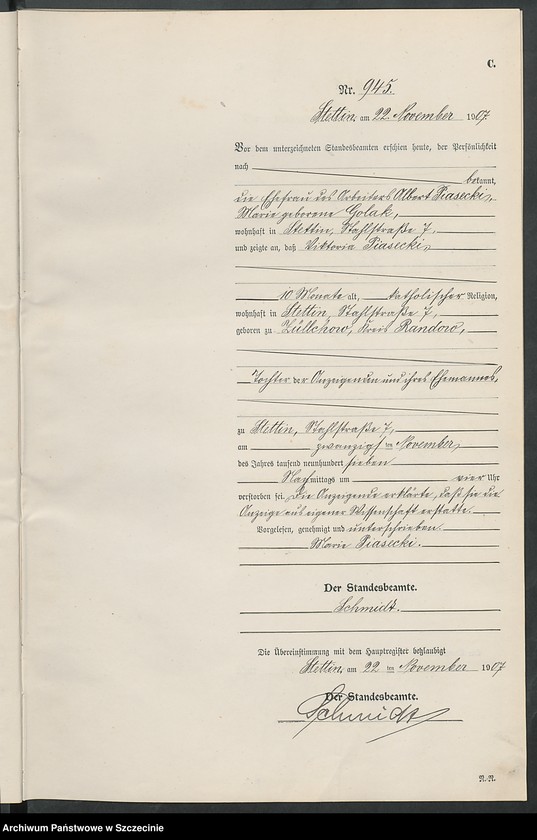 C.
Nr. 945.
Stettin, am 22. November 1907
Vor dem unterzeichneten Standesbeamten erschien heute, der Persönlichkeit
nach
bekannt,
die Ehefrau des Arbeiters Albert Piasecki,
Marie geborene Golak,
wohnhaft in Stettin, Stahlstraße 7,
und zeigte an, daß Viktoria Piasecki,
10 Monate alt, katholischer Religion,
wohnhaft in Stettin, Stahlstraße 7,
geboren zu Züllchow, Kreis Randow,
Tochter der Anzeigenden und ihres Ehemannes,
zu Stettin, Stahlstraße 7,
am zwanzigsten November
des Jahres tausend neunhundert sieben
Nachmittags um vier Uhr
verstorben sei. Die Anzeigende erklärte, daß sie die
Anzeige aus eigener Wissenschaft erstatte.
Vorgelesen, genehmigt und unterschrieben
Marie Piasecki.
Der Standesbeamte.
Schmidt.
Die Übereinstimmung mit dem Hauptregister beglaubigt
Stettin, am 22 ten November 1907
Der Standesbeamte.
Schmidt
Archiwum Państwowe w Szczecinie